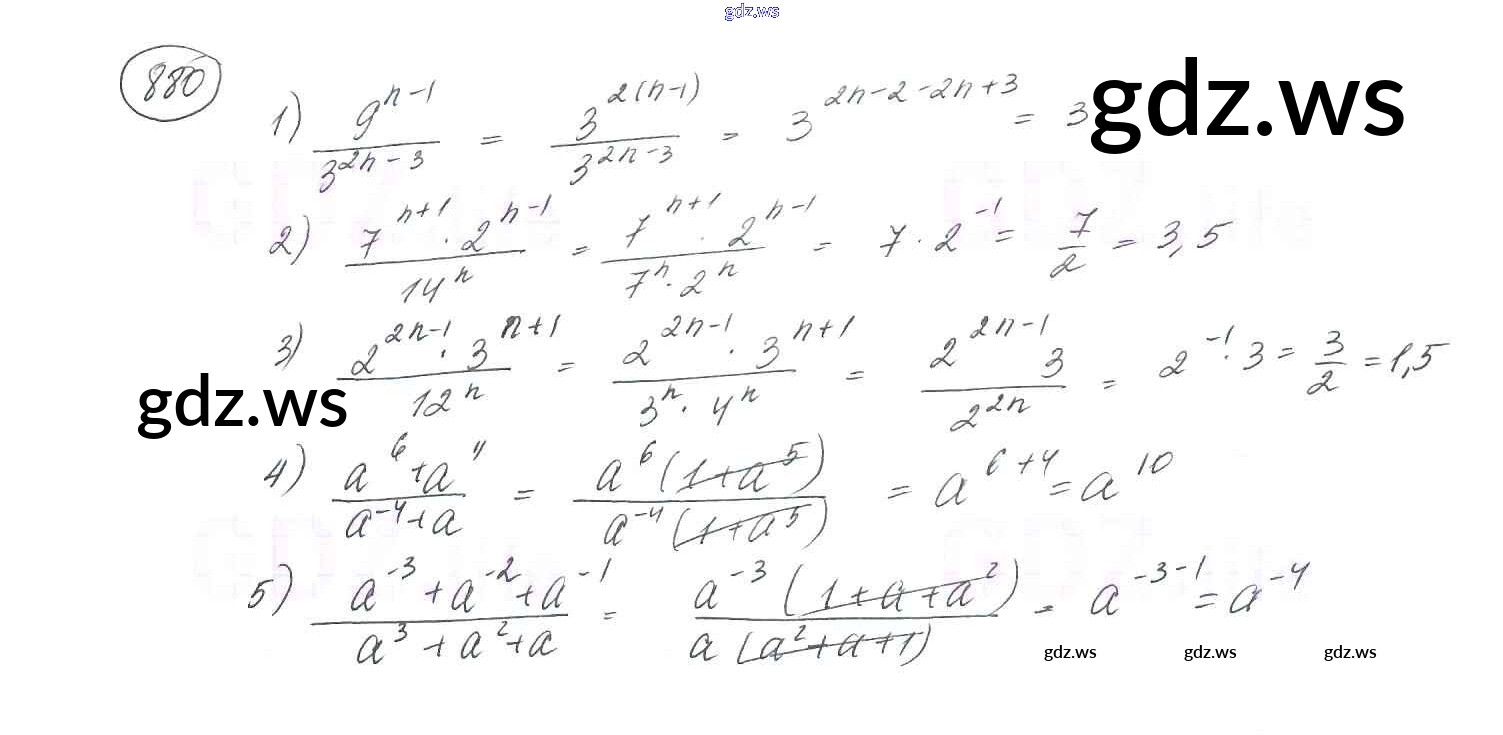 gdz.ws
880
1) 9^(n-1) / 3^(2n-3) = 3^(2(n-1)) / 3^(2n-3) = 3^(2n-2-2n+3) = 3
gdz.ws
2) 7^(n+1) · 2^(n-1) / 14^n = 7^(n+1) · 2^(n-1) / 7^n · 2^n = 7 · 2^(-1) = 7/2 = 3,5
3) 2^(2n-1) · 3^(n+1) / 12^n = 2^(2n-1) · 3^(n+1) / 3^n · 4^n = 2^(2n-1) 3 / 2^(2n) = 2^(-1) · 3 = 3/2 = 1,5
gdz.ws
4) a^6 + a^11 / a^(-4) + a = a^6 (1+a^5) / a^(-4) (1+a^5) = a^(6+4) = a^10
5) a^(-3) + a^(-2) + a^(-1) / a^3 + a^2 + a = a^(-3) (1+a+a^2) / a (a^2+a+1) = a^(-3-1) = a^(-4)
gdz.ws gdz.ws gdz.ws